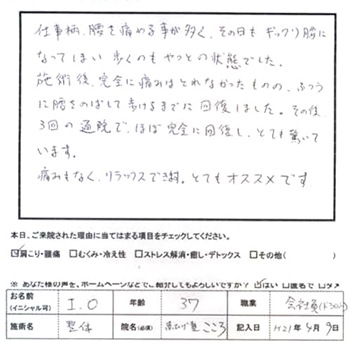 仕事柄、腰を痛める事が多く、その日もギックリ腰に
なってはい歩くのもやっとの状態でした。
施術後、完全に痛みはとれなかったものの、ふつう
に腰をのばして歩けるまでに回復しました。その後
3回の通院で、ほぼ完全に回復し、とても驚いて
います。
痛みもなく、リラックスできます。とてもオススメです
本日、ご来院された理由に当てはまる項目をチェックしてください。
☑肩こり・腰痛 □むくみ・冷え性 □ストレス解消・癒し・デトックス □その他( )
※ あなた様の声を、ホームページなどでご紹介してもよろしいですか? ☑はい □匿名で □ダメ
お名前 (イニシャル可) I.O 年齢 37 職業 会社員
施術名 整体 院名(必須) こころ 記入日 H21年4月9日